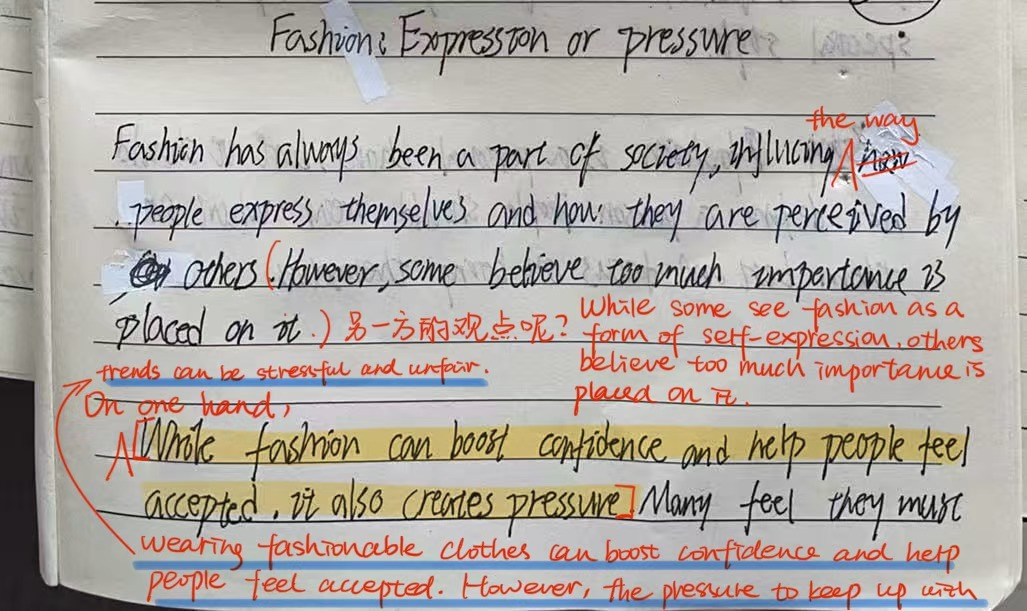 Fashion: Expression or pressure
the way
Fashion has always been a part of society, influcing how
people express themselves and how they are perceived by
others. However, some believe too much importance is
placed on it. 另一方的观点呢?
While some see fashion as a
form of self-expression, others
believe too much importance is
placed on it.
trends can be stressful and unfair.
On one hand,
While fashion can boost confidence and help people feel
accepted, it also creates pressure. Many feel they must
wearing fashionable clothes can boost confidence and help
people feel accepted. However, the pressure to keep up with